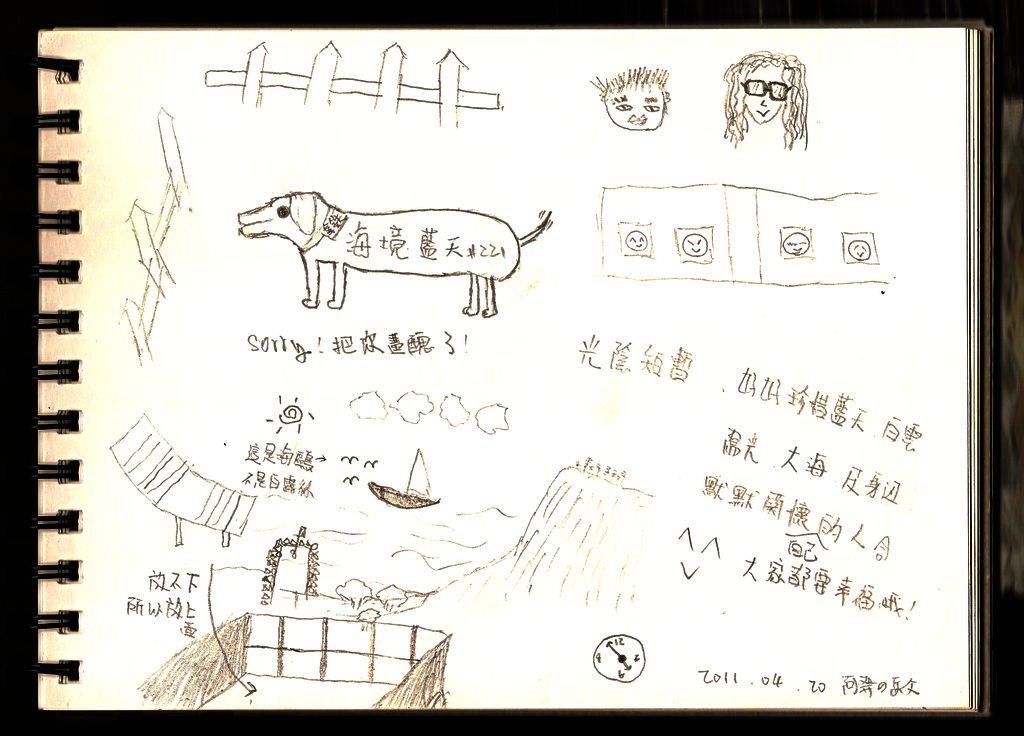 海境藍天#221
Sorry!把你畫醜了!
光陰短暫
、好好珍惜藍天 白雲
陽光、大海 及身边
默默關懷的人and
自己
大家都要幸福哦!
這是海鷗→
不是白鷺鷥
放不下
所以放上
面
12
2011.04.20